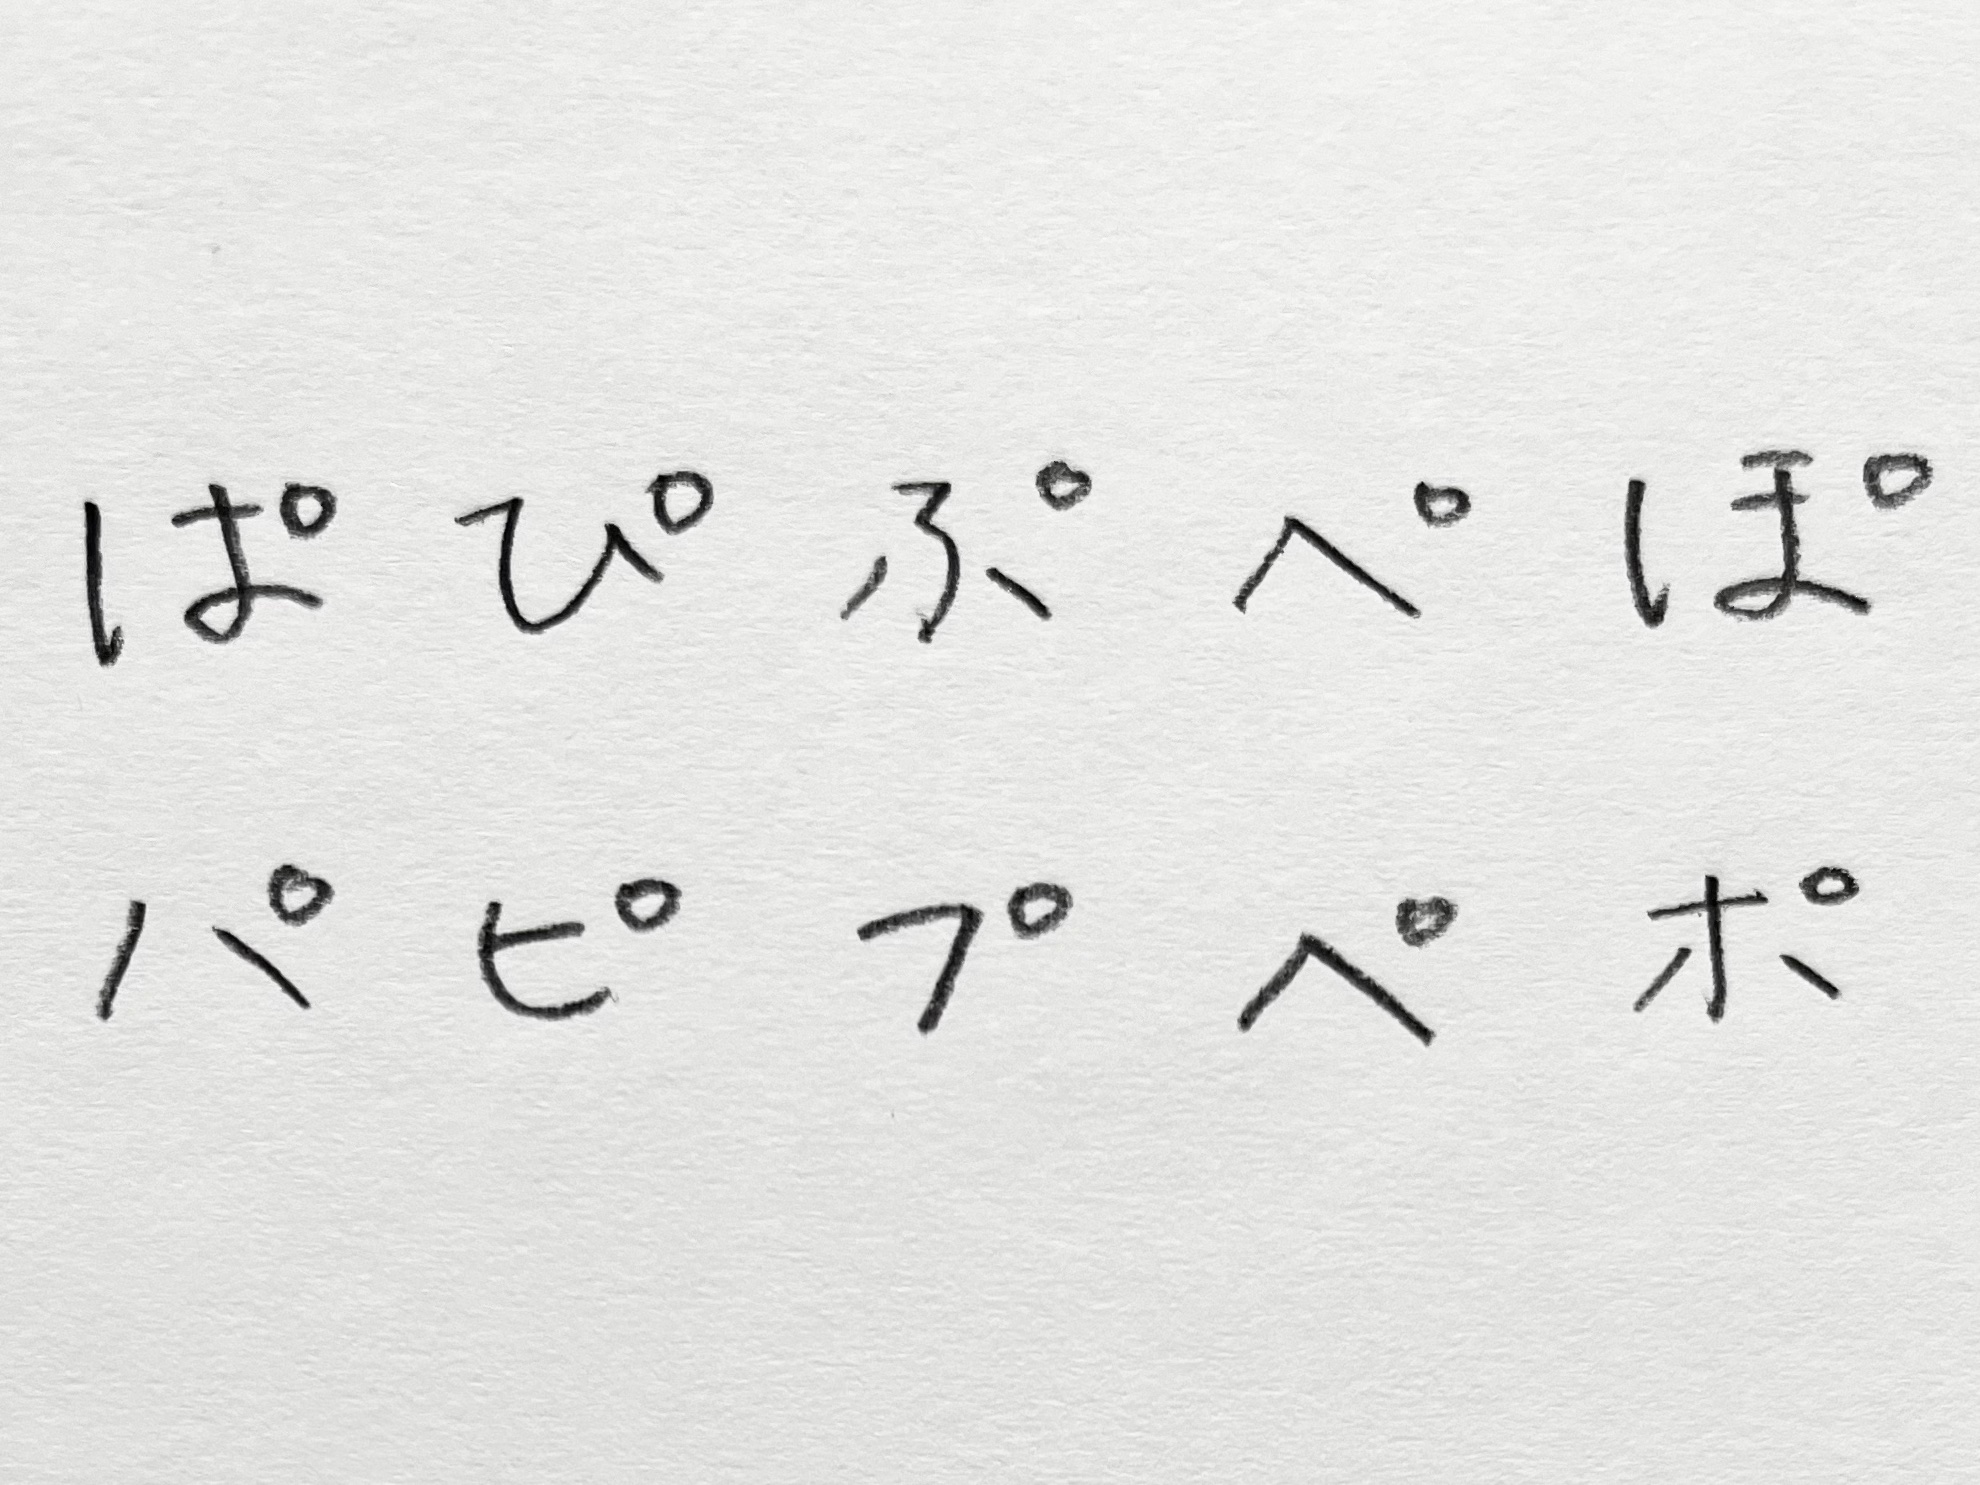 ぱ ぴ ぷ ぺ ぽ
パ ピ プ ペ ポ